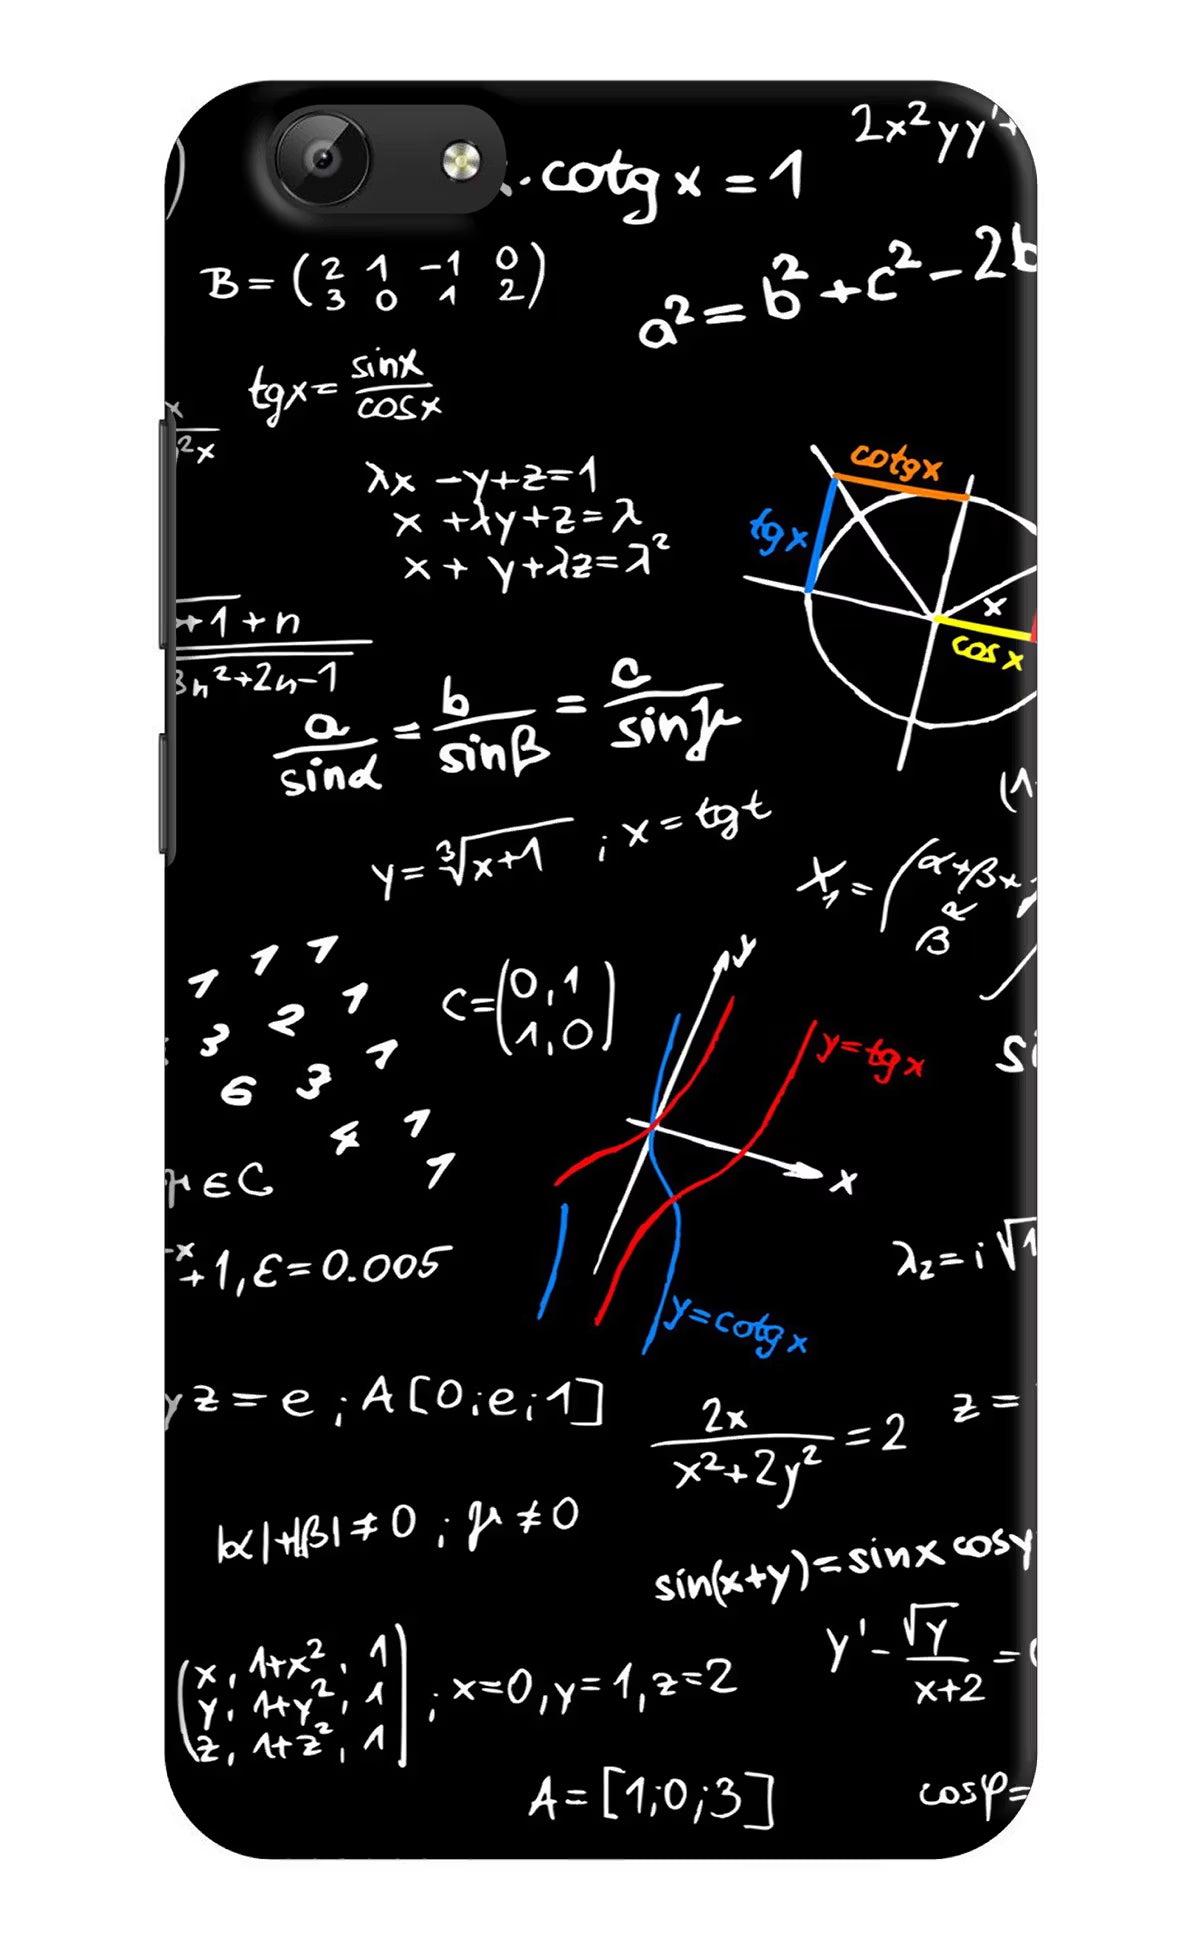 2x²yy'+
· cotg x = 1
B = (2 1 -1 0
3 0 1 2)
a² = b² + c² - 2b
tgx = sinx
cosx
²x
λx - y + z = 1
x + λy + z = λ
x + y + λz = λ²
cotgx
tgx
x
cos x
+1 + n
3n² + 2n - 1
a/sinα = b/sinβ = c/sinμ
y = ∛x+1 ; x = tgt
(1
X₁ = (α+β+
β R
1 1 1
3 2 1
6 3 1
4 1
1
C = (0,1
1,0)
y
y = tgx
si
x
μ ∈ C
-x
+1, ε = 0.005
λ₂ = i√1
y = cotgx
yz = e ; A[0;e;1]
2x
x² + 2y² = 2
z =
|α|+|β| ≠ 0 ; μ ≠ 0
sin(x+y) = sinx cosy
y' - √y
x+2 =
(x, 1+x², 1
y, 1+y², 1
z, 1+z², 1) ; x=0, y=1, z=2
A = [1;0;3]
cosφ=